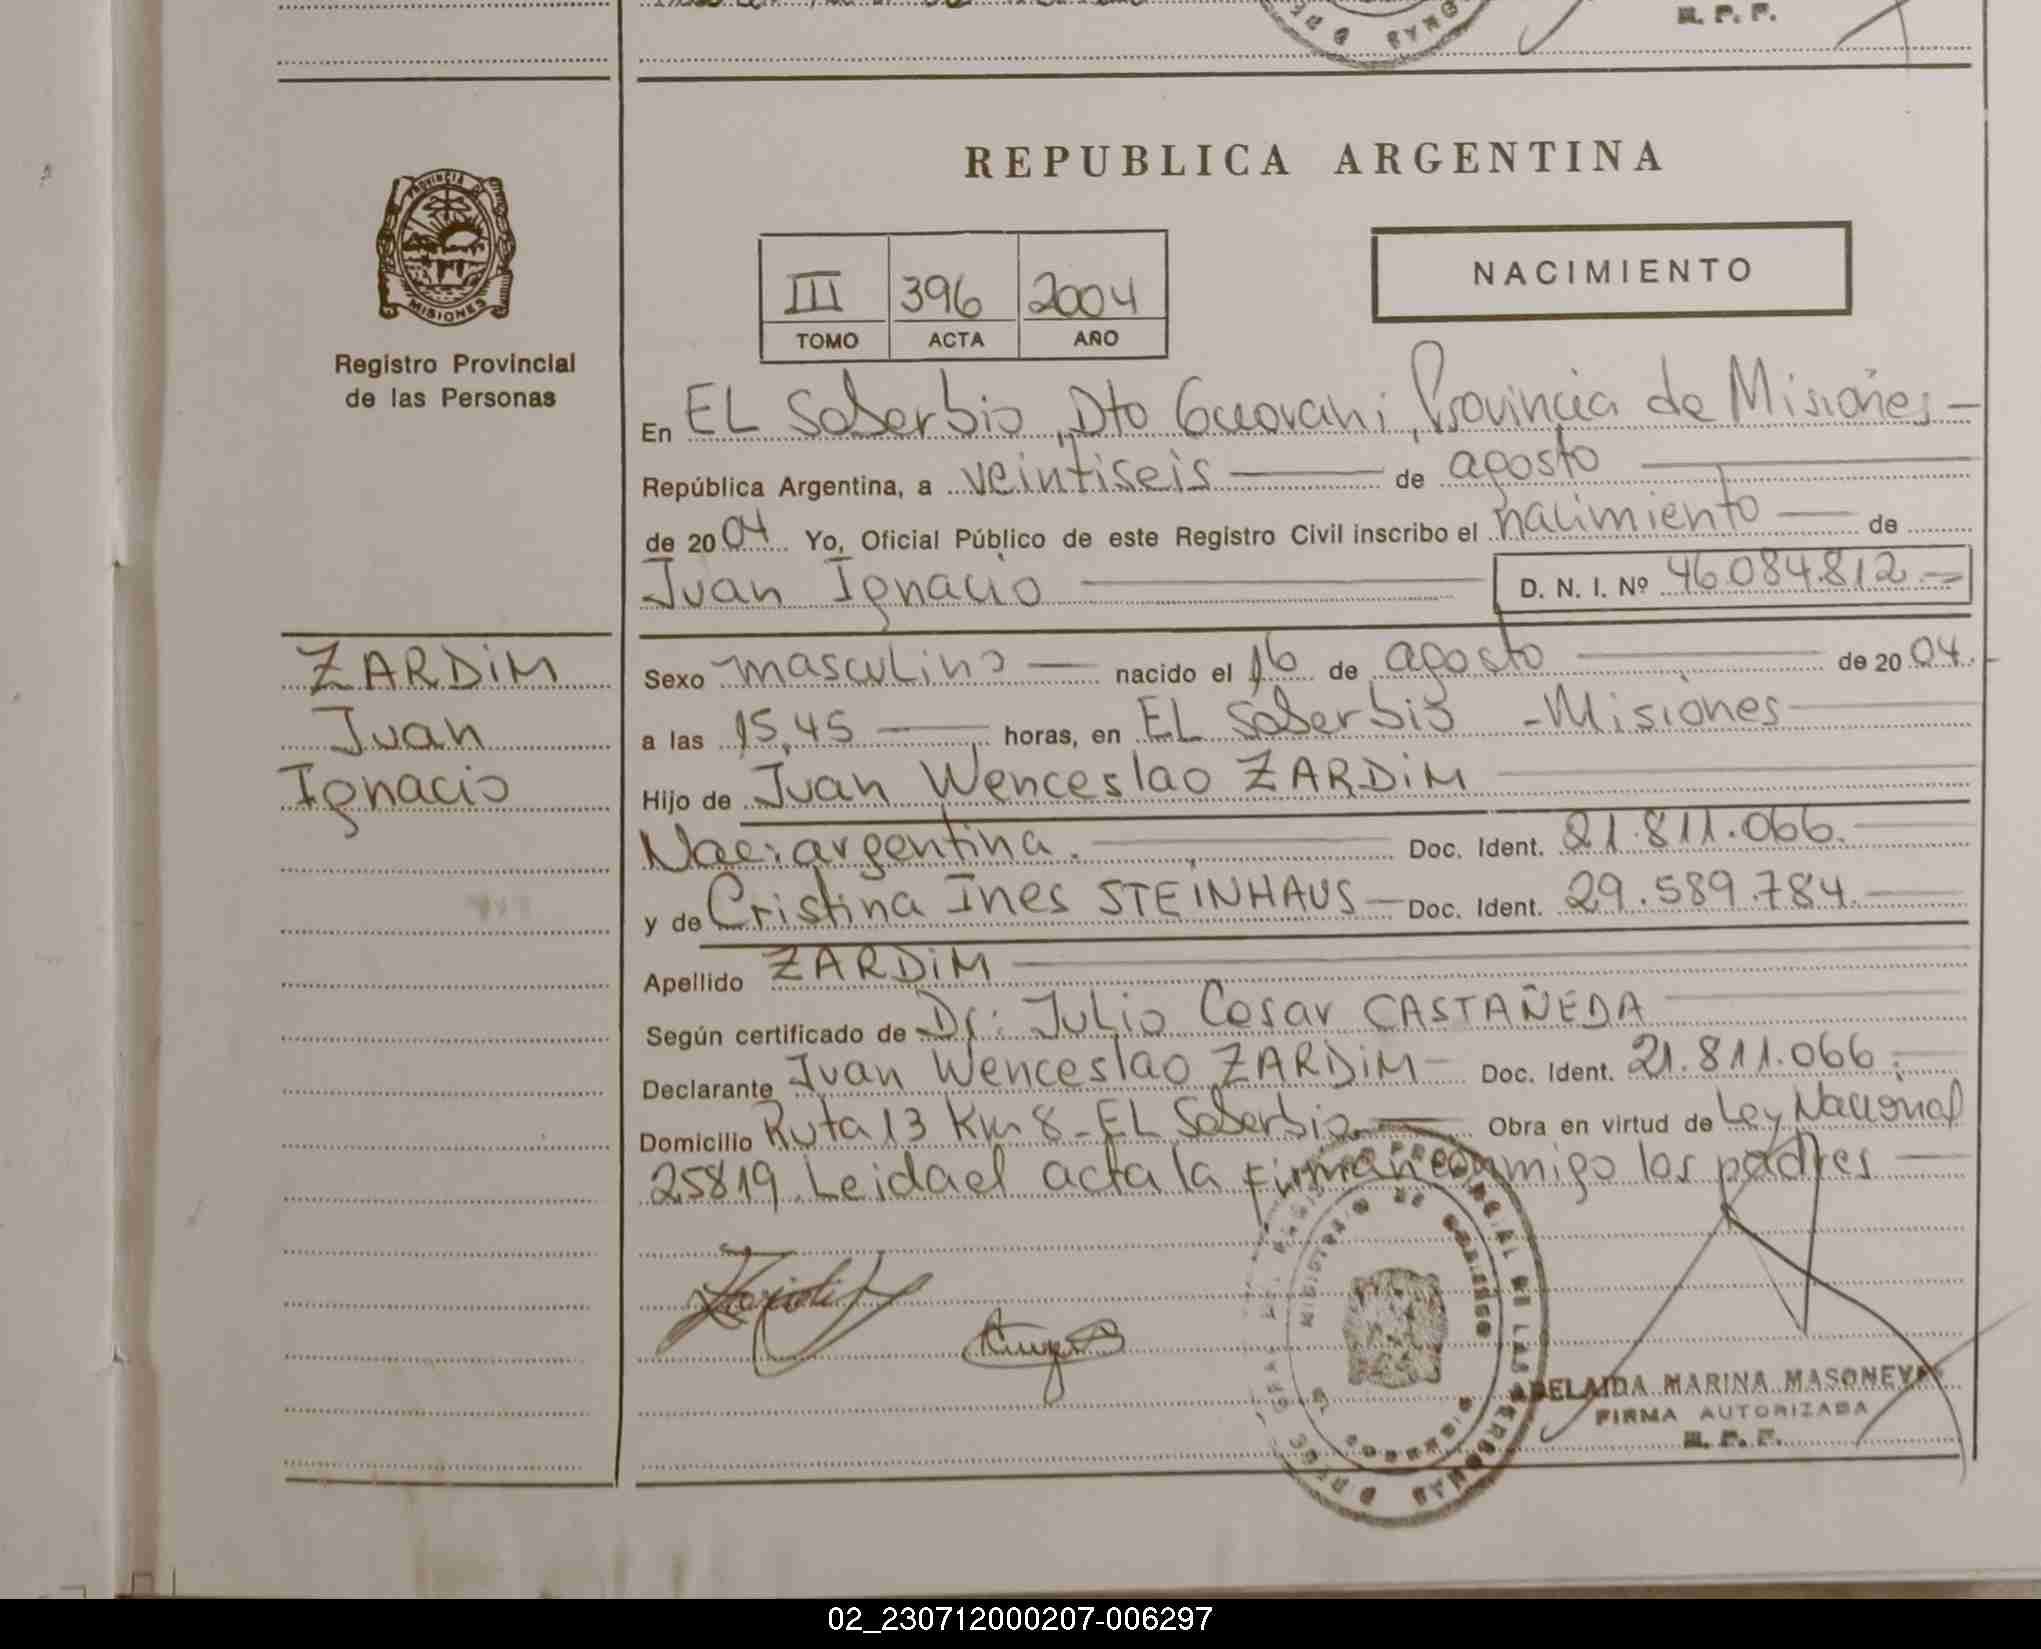 R. P. P.
REPUBLICA ARGENTINA
PROVINCIA DE MISIONES
Registro Provincial
de las Personas
III 396 2004
TOMO ACTA AÑO
NACIMIENTO
En EL Soberbio, Dto Guarani, Provincia de Misiones
República Argentina, a veintiseis de agosto
de 2004 Yo, Oficial Público de este Registro Civil inscribo el nacimiento de
Juan Ignacio D. N. I. Nº 46.084.812.
ZARDiM
Juan
Ignacio
Sexo masculino nacido el 16 de agosto de 2004.
a las 15,45 horas, en EL Soberbio - Misiones
Hijo de Juan Wenceslao ZARDiM
Naci: argentina. Doc. Ident. 21.811.066.
y de Cristina Ines STEiNHAUS Doc. Ident. 29.589.784.
Apellido ZARDiM
Según certificado de Dr: Julio Cesar CASTAÑEDA
Declarante Juan Wenceslao ZARDiM Doc. Ident. 21.811.066.
Domicilio Ruta 13 Km 8 - EL Soberbio Obra en virtud de Ley Nacional
25819. Leida el acta la firman conmigo los padres
ADELAIDA MARINA MASONEYA
FIRMA AUTORIZADA
R. P. P.
02_230712000207-006297